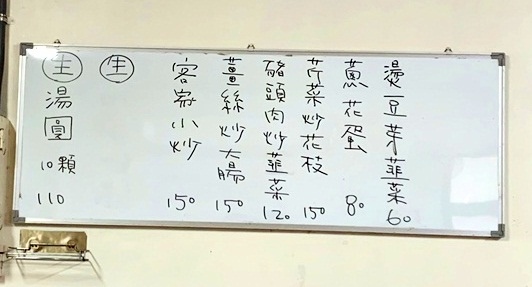 燙豆芽韮菜 60
蔥花蛋 80
芹菜炒花枝 150
豬頭肉炒韮菜 120
薑絲炒大腸 150
客家小炒 150
生
生湯圓 10顆 110